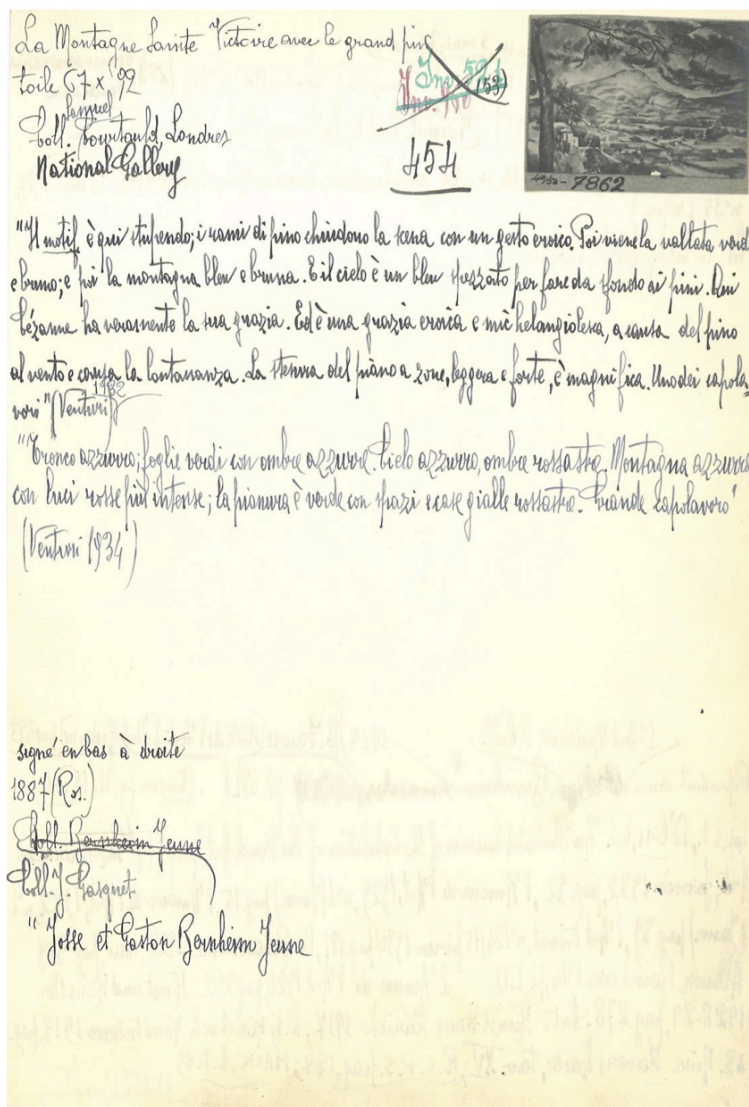 La Montagne Sainte Victoire avec le grand pin
toile 67 x 92
Samuel
Coll. Courtauld Londres
National Gallery
Inv. 52
(53)
454
4930-7862
"Il motif è qui stupendo; i rami di pino chiudono la scena con un gesto eroico. Poi viene la vallata verde
e bruno; e poi la montagna bleu e bruna. E il cielo è un bleu spezzato per fare da sfondo ai pini. Qui
Cézanne ha veramente la sua grazia. Ed è una grazia eroica e michelangiolesca, a causa del pino
al vento e causa la lontananza. La stesura del piano a zone, leggera e forte, è magnifica. Uno dei capola
vori" (Venturi)
"Tronco azzurro; foglie verdi con ombre azzurre. Cielo azzurro, ombre rossastre. Montagna azzurra
con luci rosse più intense; la pianura è verde con spazi e case gialle rossastre. Grande capolavoro"
(Venturi 1934)
signé en bas à droite
1887 (Ros.)
Coll. Bernheim Jeune
Coll. J. Gasquet
" Josse et Gaston Bernheim Jeune